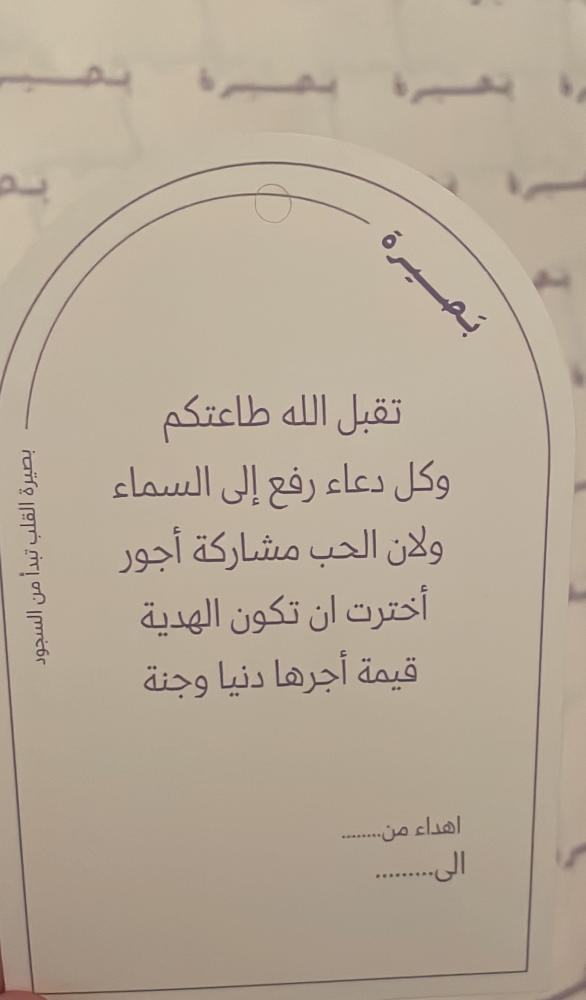 بصيرة بصيرة بصيرة
بَصيرة
تقبل الله طاعتكم
وكل دعاء رفع إلى السماء
ولان الحب مشاركة أجور
أخترت ان تكون الهدية
قيمة أجرها دنيا وجنة
بصيرة القلب تبدأ من السجود
اهداء من........
الى.........